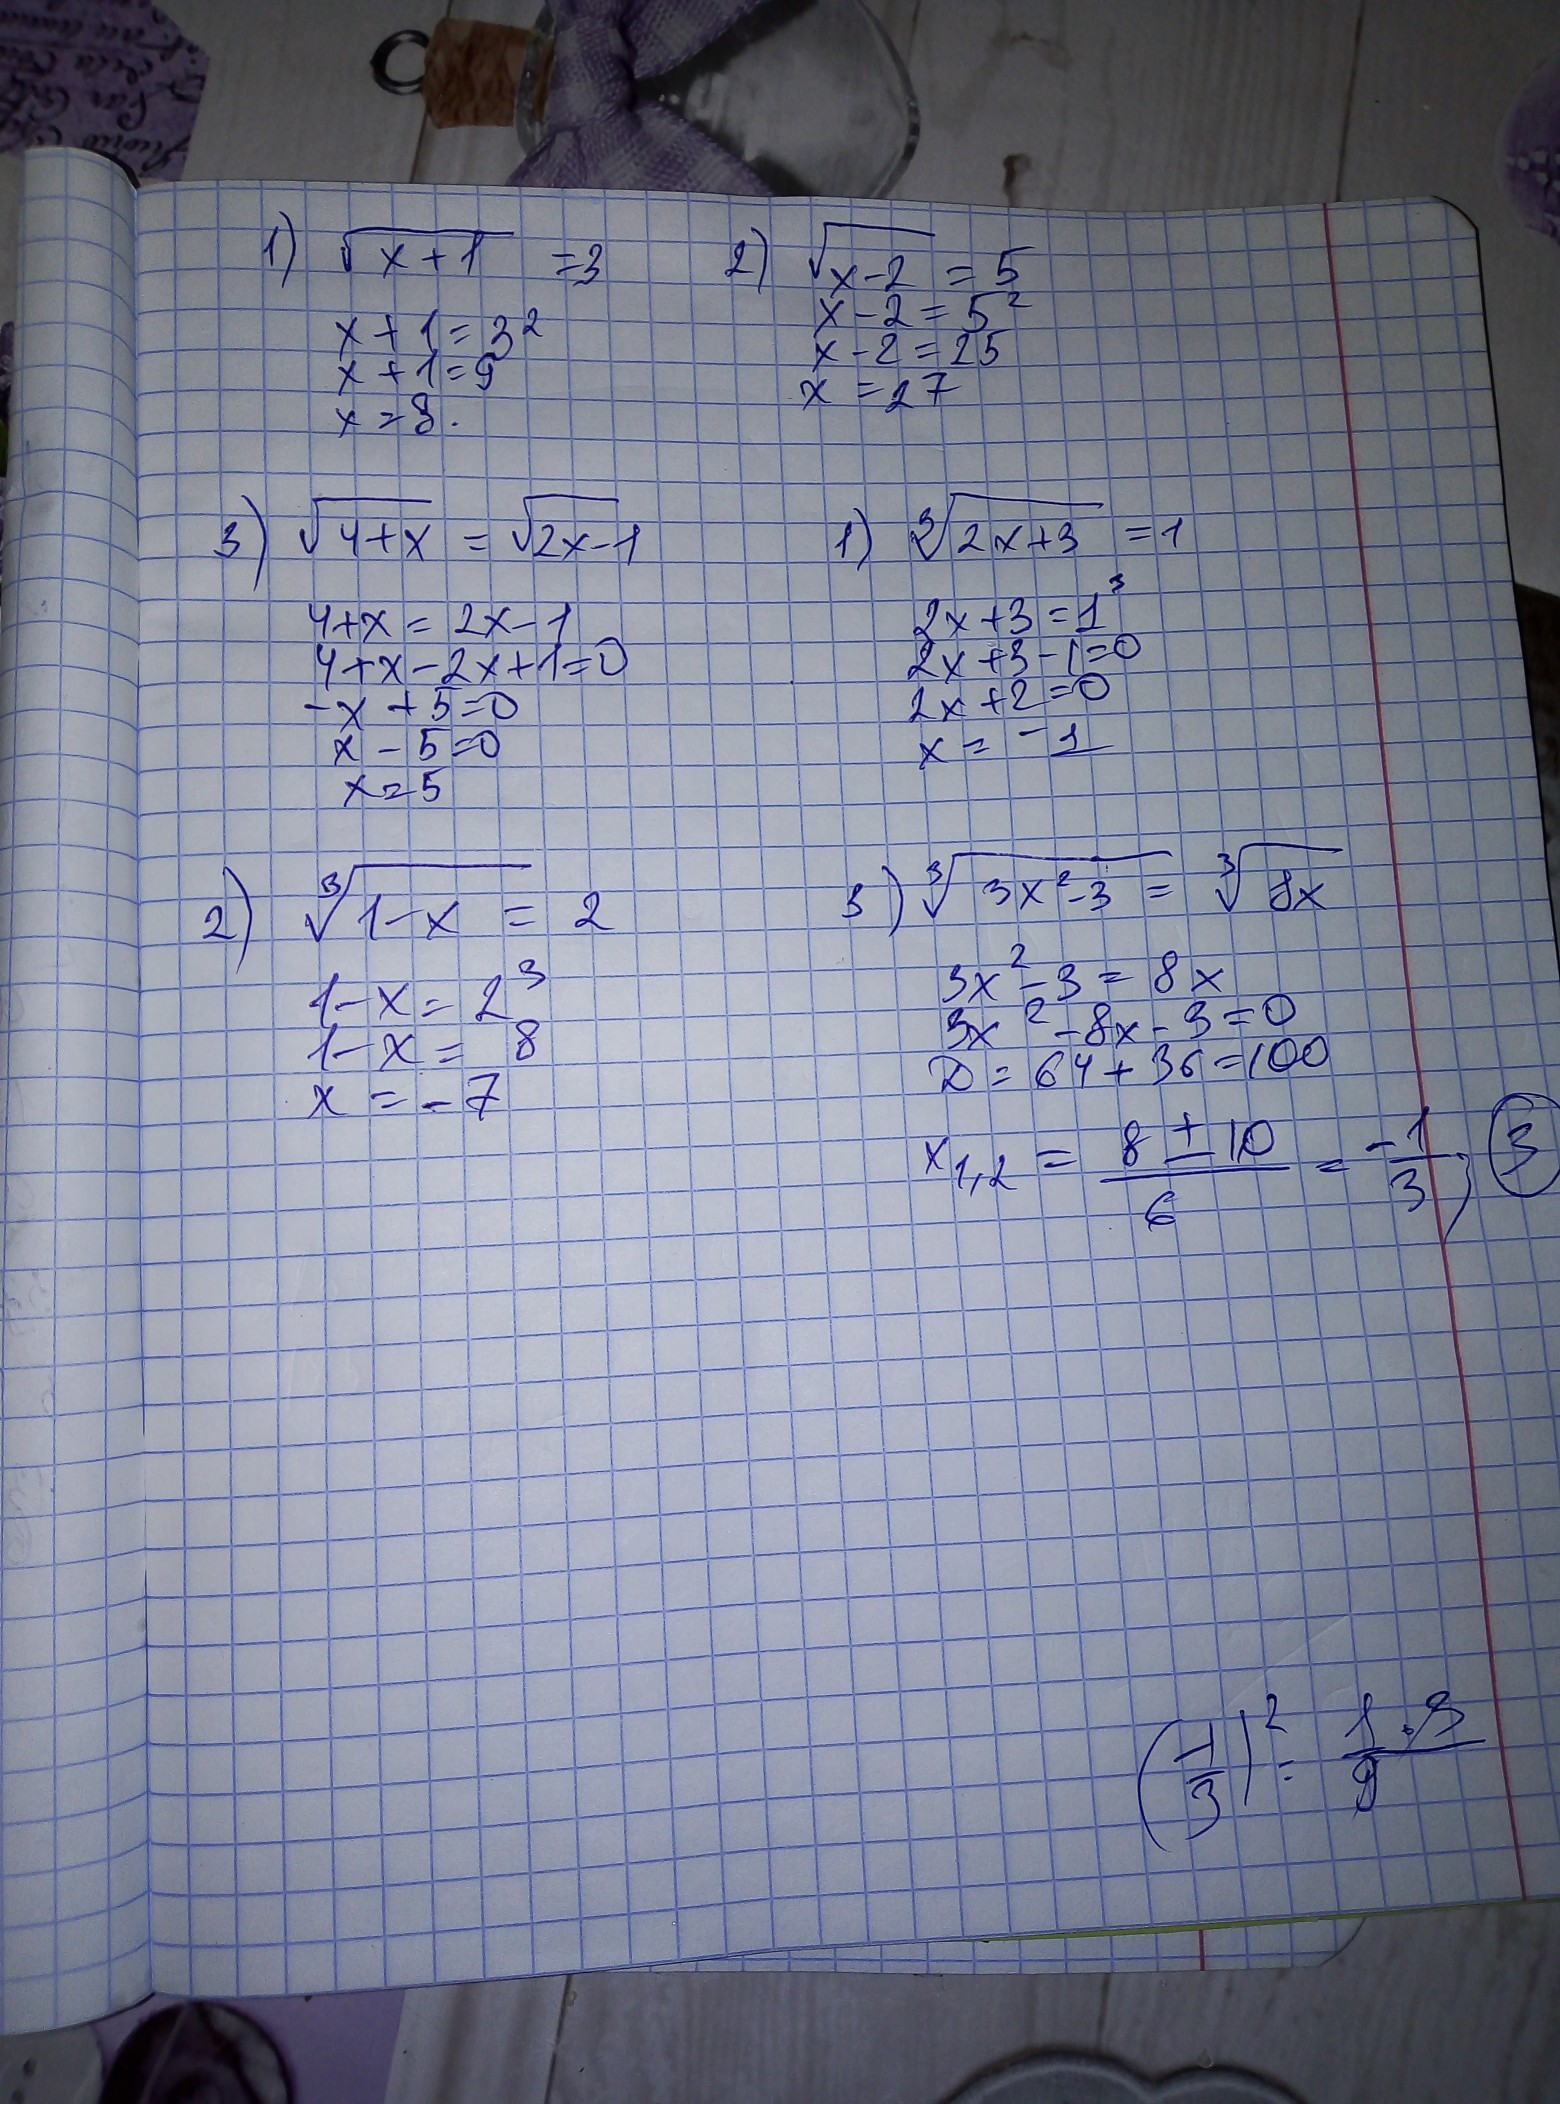 1) √x+1 =3
x+1=3²
x+1=9
x=8.
2) √x-2 = 5
x-2=5²
x-2=25
x=27
3) √4+x = √2x-1
4+x=2x-1
4+x-2x+1=0
-x+5=0
x-5=0
x=5
1) ³√2x+3 =1
2x+3=1³
2x+3-1=0
2x+2=0
x=-1
2) ³√1-x = 2
1-x=2³
1-x=8
x=-7
3) ³√3x²-3 = ³√8x
3x²-3=8x
3x²-8x-3=0
D=64+36=100
x1,2 = 8±10/6 = -1/3; 3
(-1/3)² = 1·3/9